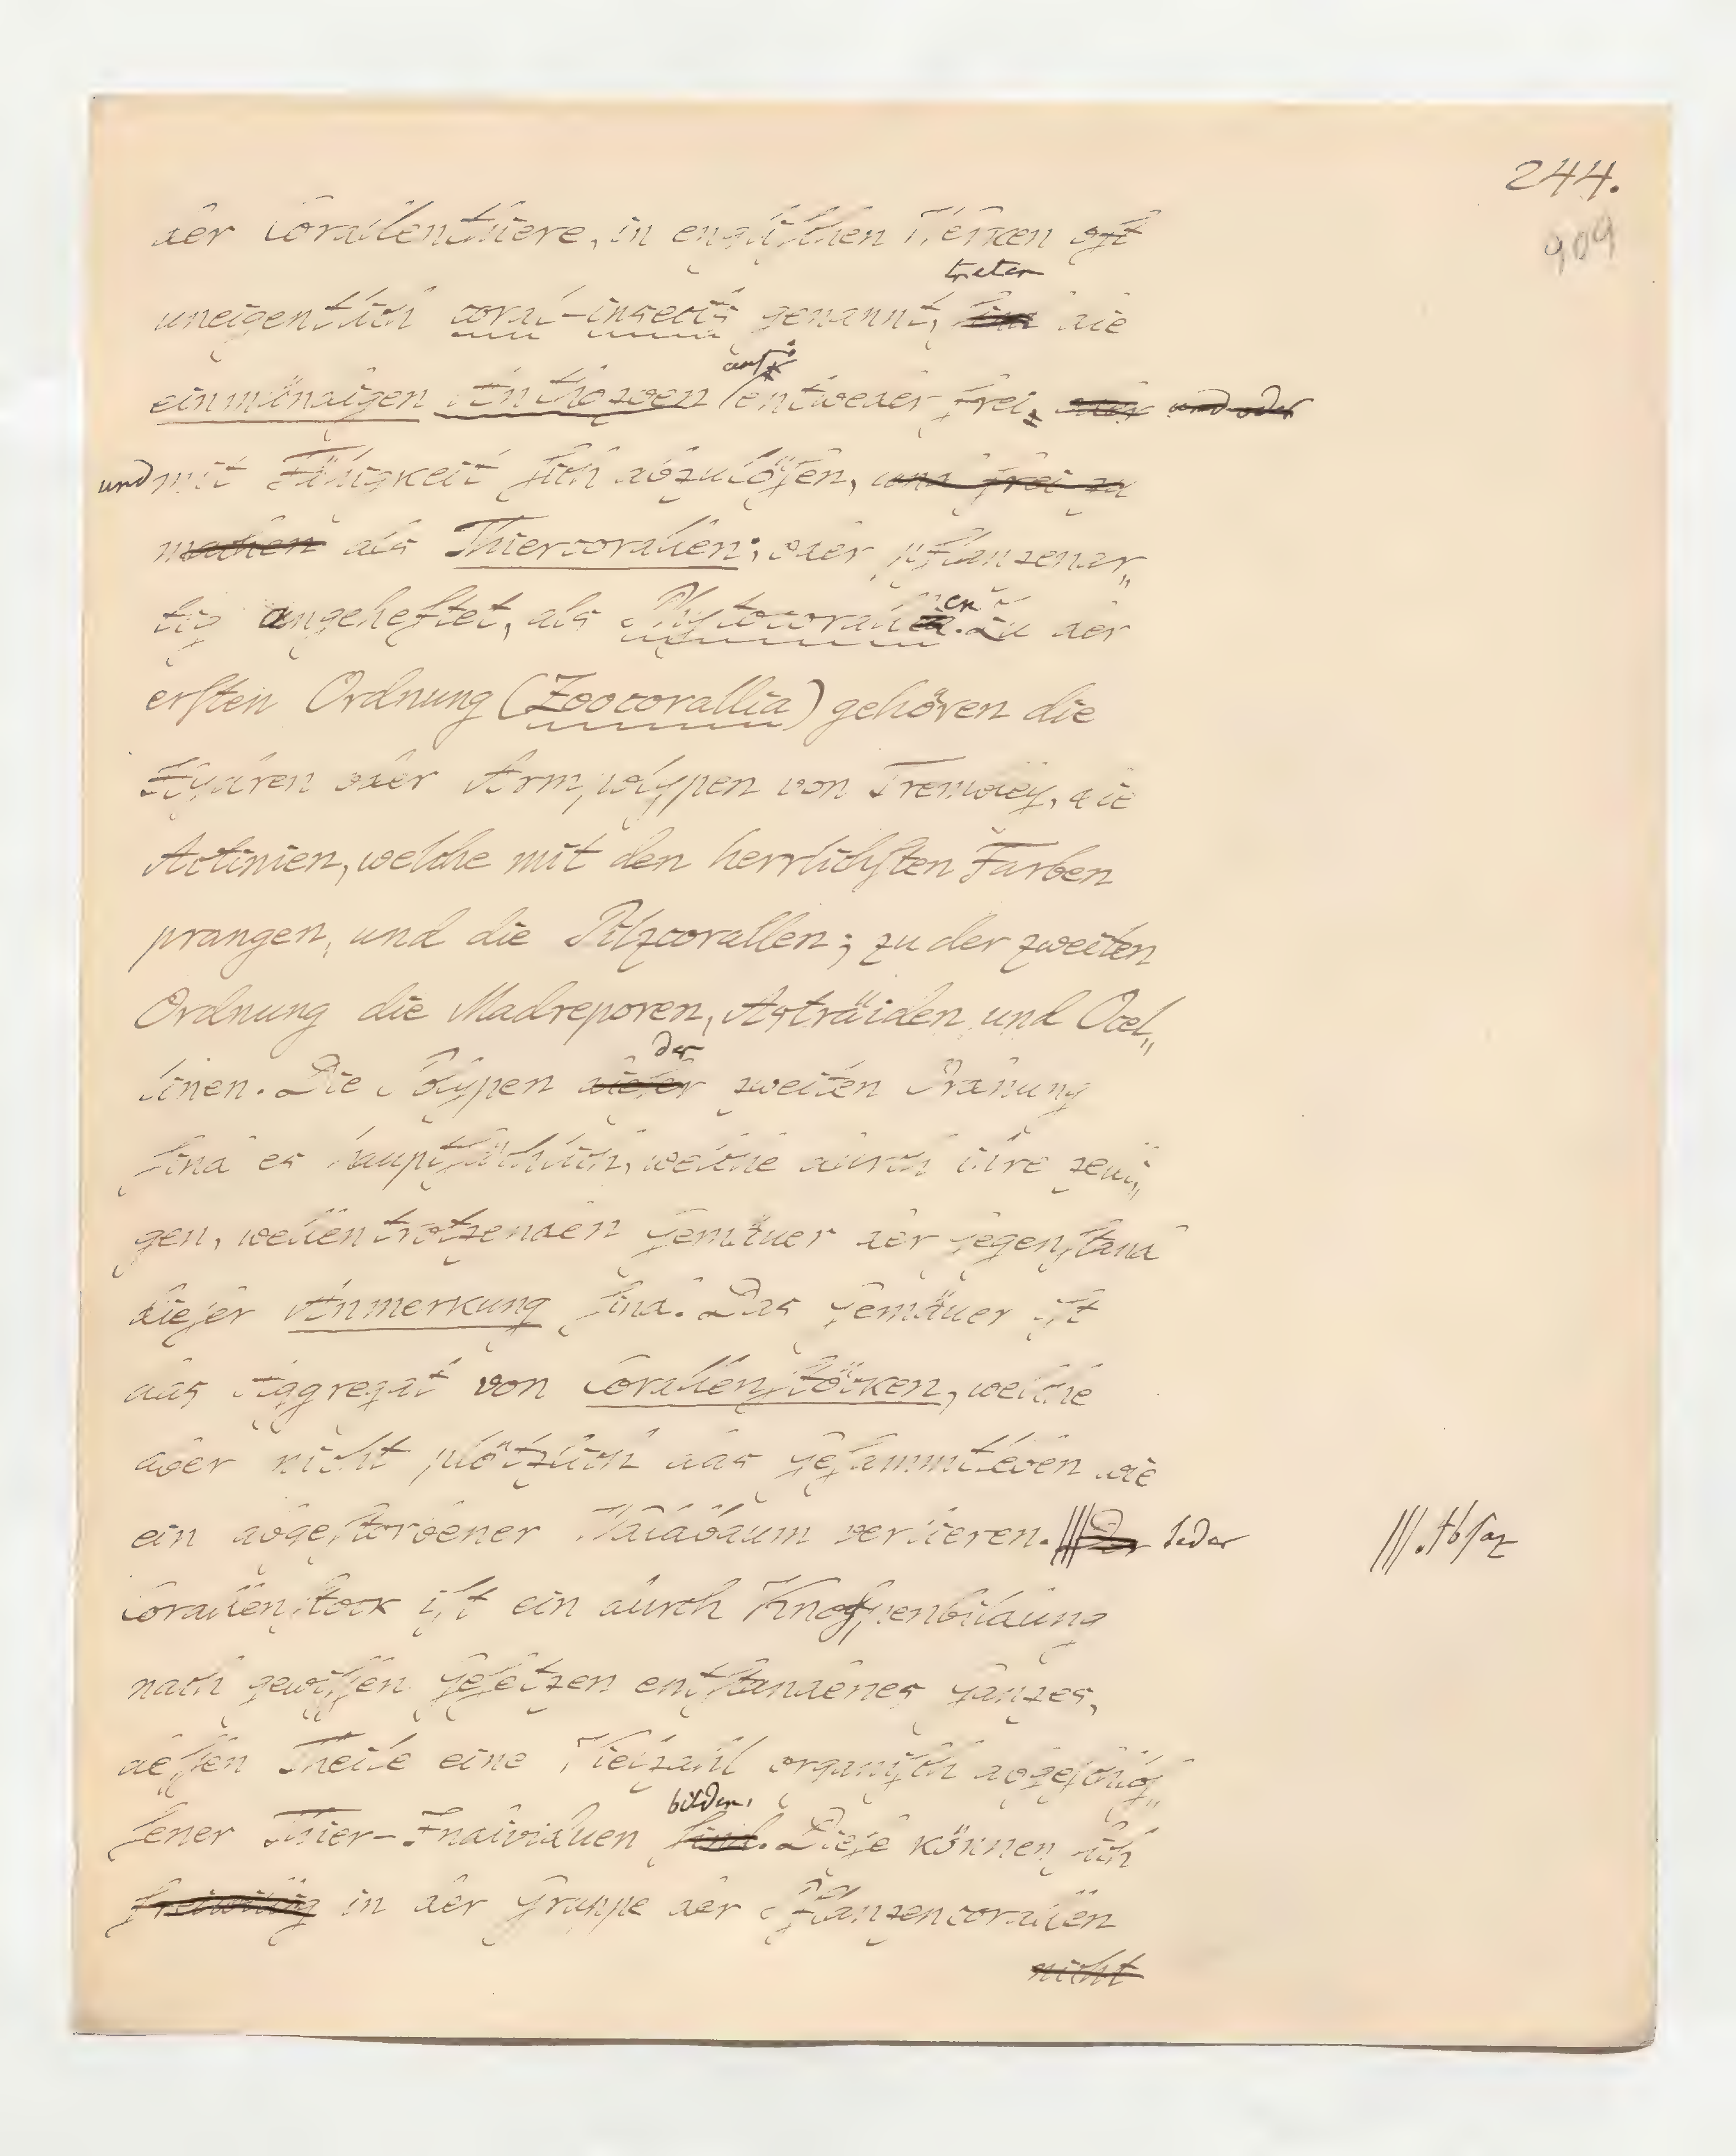 244.
909
der Corallenthiere, in englischen Werken oft
treten
uneigentlich coral-insects genannt, die
auf:
einmündigen Anthozoen entweder frei, oder und oder
und mit Fähigkeit sich abzulösen, und frei zu
machen als Thiercorallen; oder pflanzenar„
tig angeheftet, als Phytocorallien. Zu der
ersten Ordnung (Zoocorallia) gehören die
Hydren oder Arm-polypen von Trembley, die
Actinien, welche mit den herrlichsten Farben
prangen, und die Pilzcorallen; zu der zweiten
Ordnung die Madreporen, Asträiden und Ocel„
der
linen. Die Polypen dieser zweiten Ordnung
sind es hauptsächlich, welche durch ihre zelli„
gen, wellentrotzenden Gemäuer der Gegenstand
dieser Anmerkung sind. Das Gemäuer ist
das Aggregat von Corallenstöcken, welche
aber nicht plötzlich das Gesammtleben wie
ein abgestorbener Waldbaum verlieren. ||| Der Jeder
|||. Absaz
Corallenstock ist ein durch Knospenbildung
nach gewissen Gesetzen entstandenes Ganzes,
dessen Theile eine Vielzahl organisch abgeschlos„
bilden.
sener Thier-Individuen sind. Diese können sich
freiwillig in der Gruppe der Pflanzencorallen
nicht